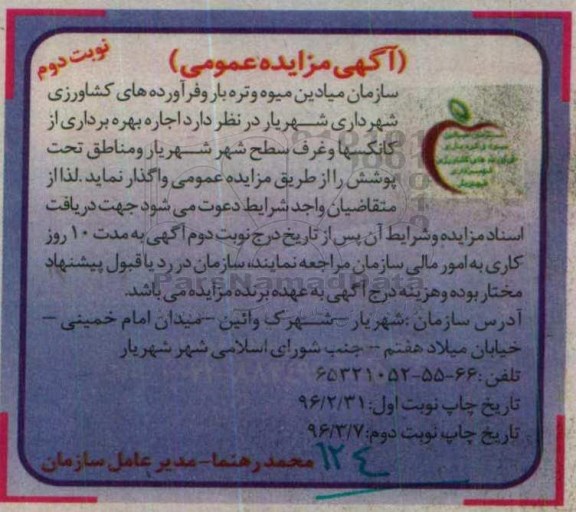 (آگهی مزایده عمومی)
نوبت دوم
سازمان میادین میوه و تره بار و فرآورده های کشاورزی
شهرداری شهریار در نظر دارد اجاره بهره برداری از
کانکسها و غرف سطح شهر شهریار و مناطق تحت
پوشش را از طریق مزایده عمومی واگذار نماید. لذا از
متقاضیان واجد شرایط دعوت می شود جهت دریافت
اسناد مزایده و شرایط آن پس از تاریخ درج نوبت دوم آگهی به مدت ۱۰ روز
کاری به امور مالی سازمان مراجعه نمایند، سازمان در رد یا قبول پیشنهاد
مختار بوده و هزینه درج آگهی به عهده برنده مزایده می باشد.
آدرس سازمان: شهریار – شهرک وائین – میدان امام خمینی –
خیابان میلاد هفتم – جنب شورای اسلامی شهر شهریار
تلفن: ۶۶-۵۵-۶۵۳۲۱۰۵۲
تاریخ چاپ نوبت اول: ۹۶/۲/۳۱
تاریخ چاپ نوبت دوم: ۹۶/۳/۷
محمد رهنما - مدیر عامل سازمان
۱۲۴
ParsNamadData